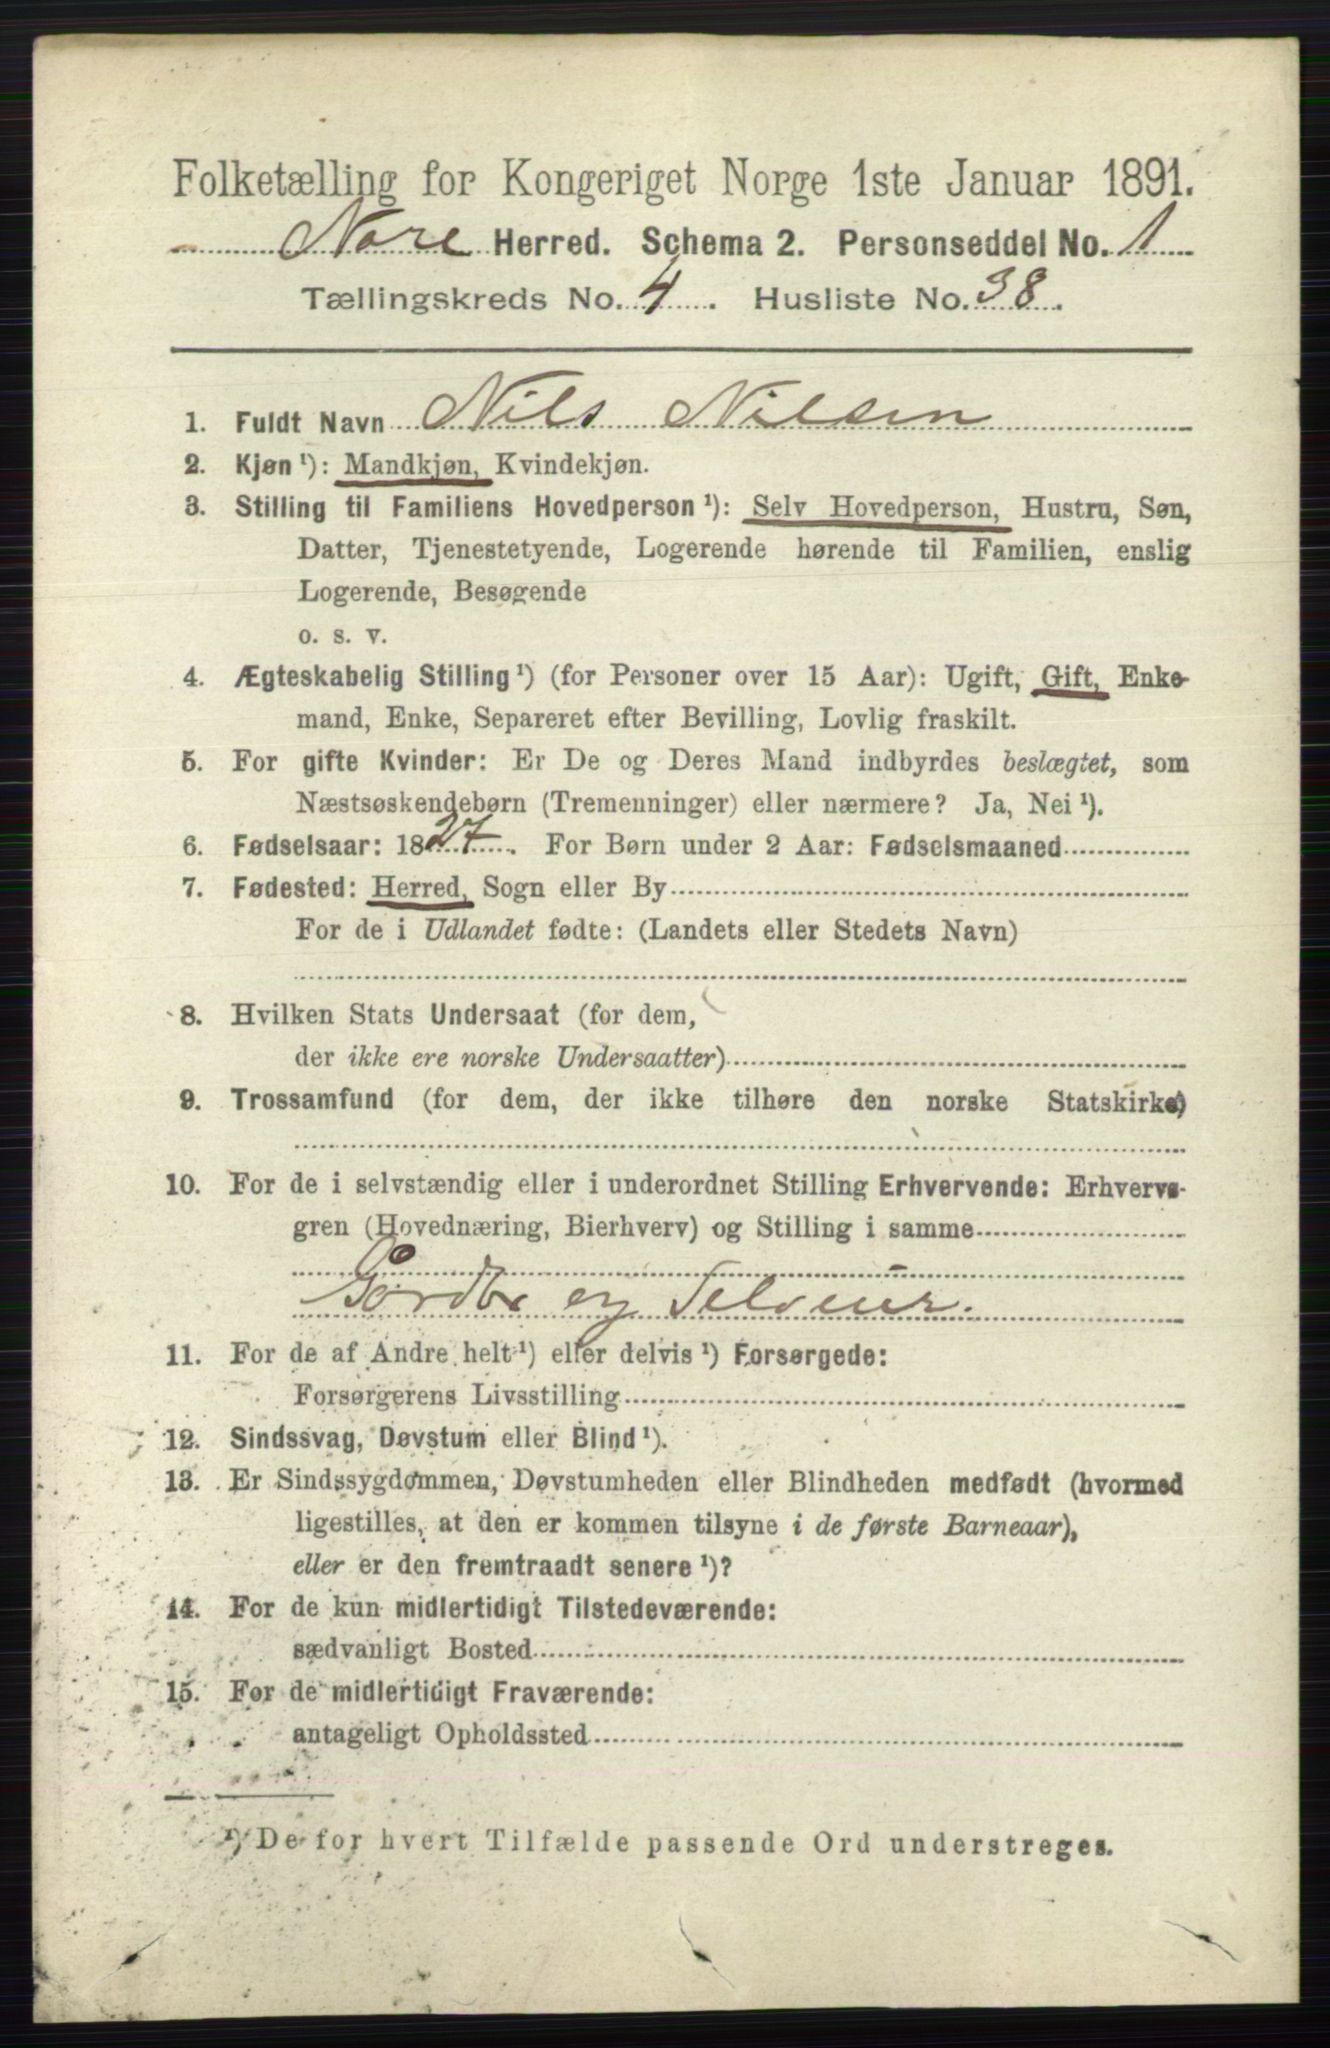 Folketælling for Kongeriget Norge 1ste Januar 1891.
Nore Herred. Schema 2. Personseddel No. 1
Tællingskreds No. 4. Husliste No. 38.
1. Fuldt Navn Nils Nilsen
2. Kjøn ¹): Mandkjøn, Kvindekjøn.
3. Stilling til Familiens Hovedperson ¹): Selv Hovedperson, Hustru, Søn,
Datter, Tjenestetyende, Logerende hørende til Familien, enslig
Logerende, Besøgende
o. s. v.
4. Ægteskabelig Stilling ¹) (for Personer over 15 Aar): Ugift, Gift, Enke-
mand, Enke, Separeret efter Bevilling, Lovlig fraskilt.
5. For gifte Kvinder: Er De og Deres Mand indbyrdes beslægtet, som
Næstsøskendebørn (Tremenninger) eller nærmere? Ja, Nei ¹).
6. Fødselsaar: 1827. For Børn under 2 Aar: Fødselsmaaned
7. Fødested: Herred, Sogn eller By
For de i Udlandet fødte: (Landets eller Stedets Navn)
8. Hvilken Stats Undersaat (for dem,
der ikke ere norske Undersaatter)
9. Trossamfund (for dem, der ikke tilhøre den norske Statskirke)
10. For de i selvstændig eller i underordnet Stilling Erhvervende: Erhvervs-
gren (Hovednæring, Bierhverv) og Stilling i samme
Gårdbr og Selveier.
11. For de af Andre helt ¹) eller delvis ¹) Forsørgede:
Forsørgerens Livsstilling
12. Sindssvag, Døvstum eller Blind ¹).
13. Er Sindssygdommen, Døvstumheden eller Blindheden medfødt (hvormed
ligestilles, at den er kommen tilsyne i de første Barneaar),
eller er den fremtraadt senere ¹)?
14. For de kun midlertidigt Tilstedeværende:
sædvanligt Bosted
15. For de midlertidigt Fraværende:
antageligt Opholdssted
¹) De for hvert Tilfælde passende Ord understreges.